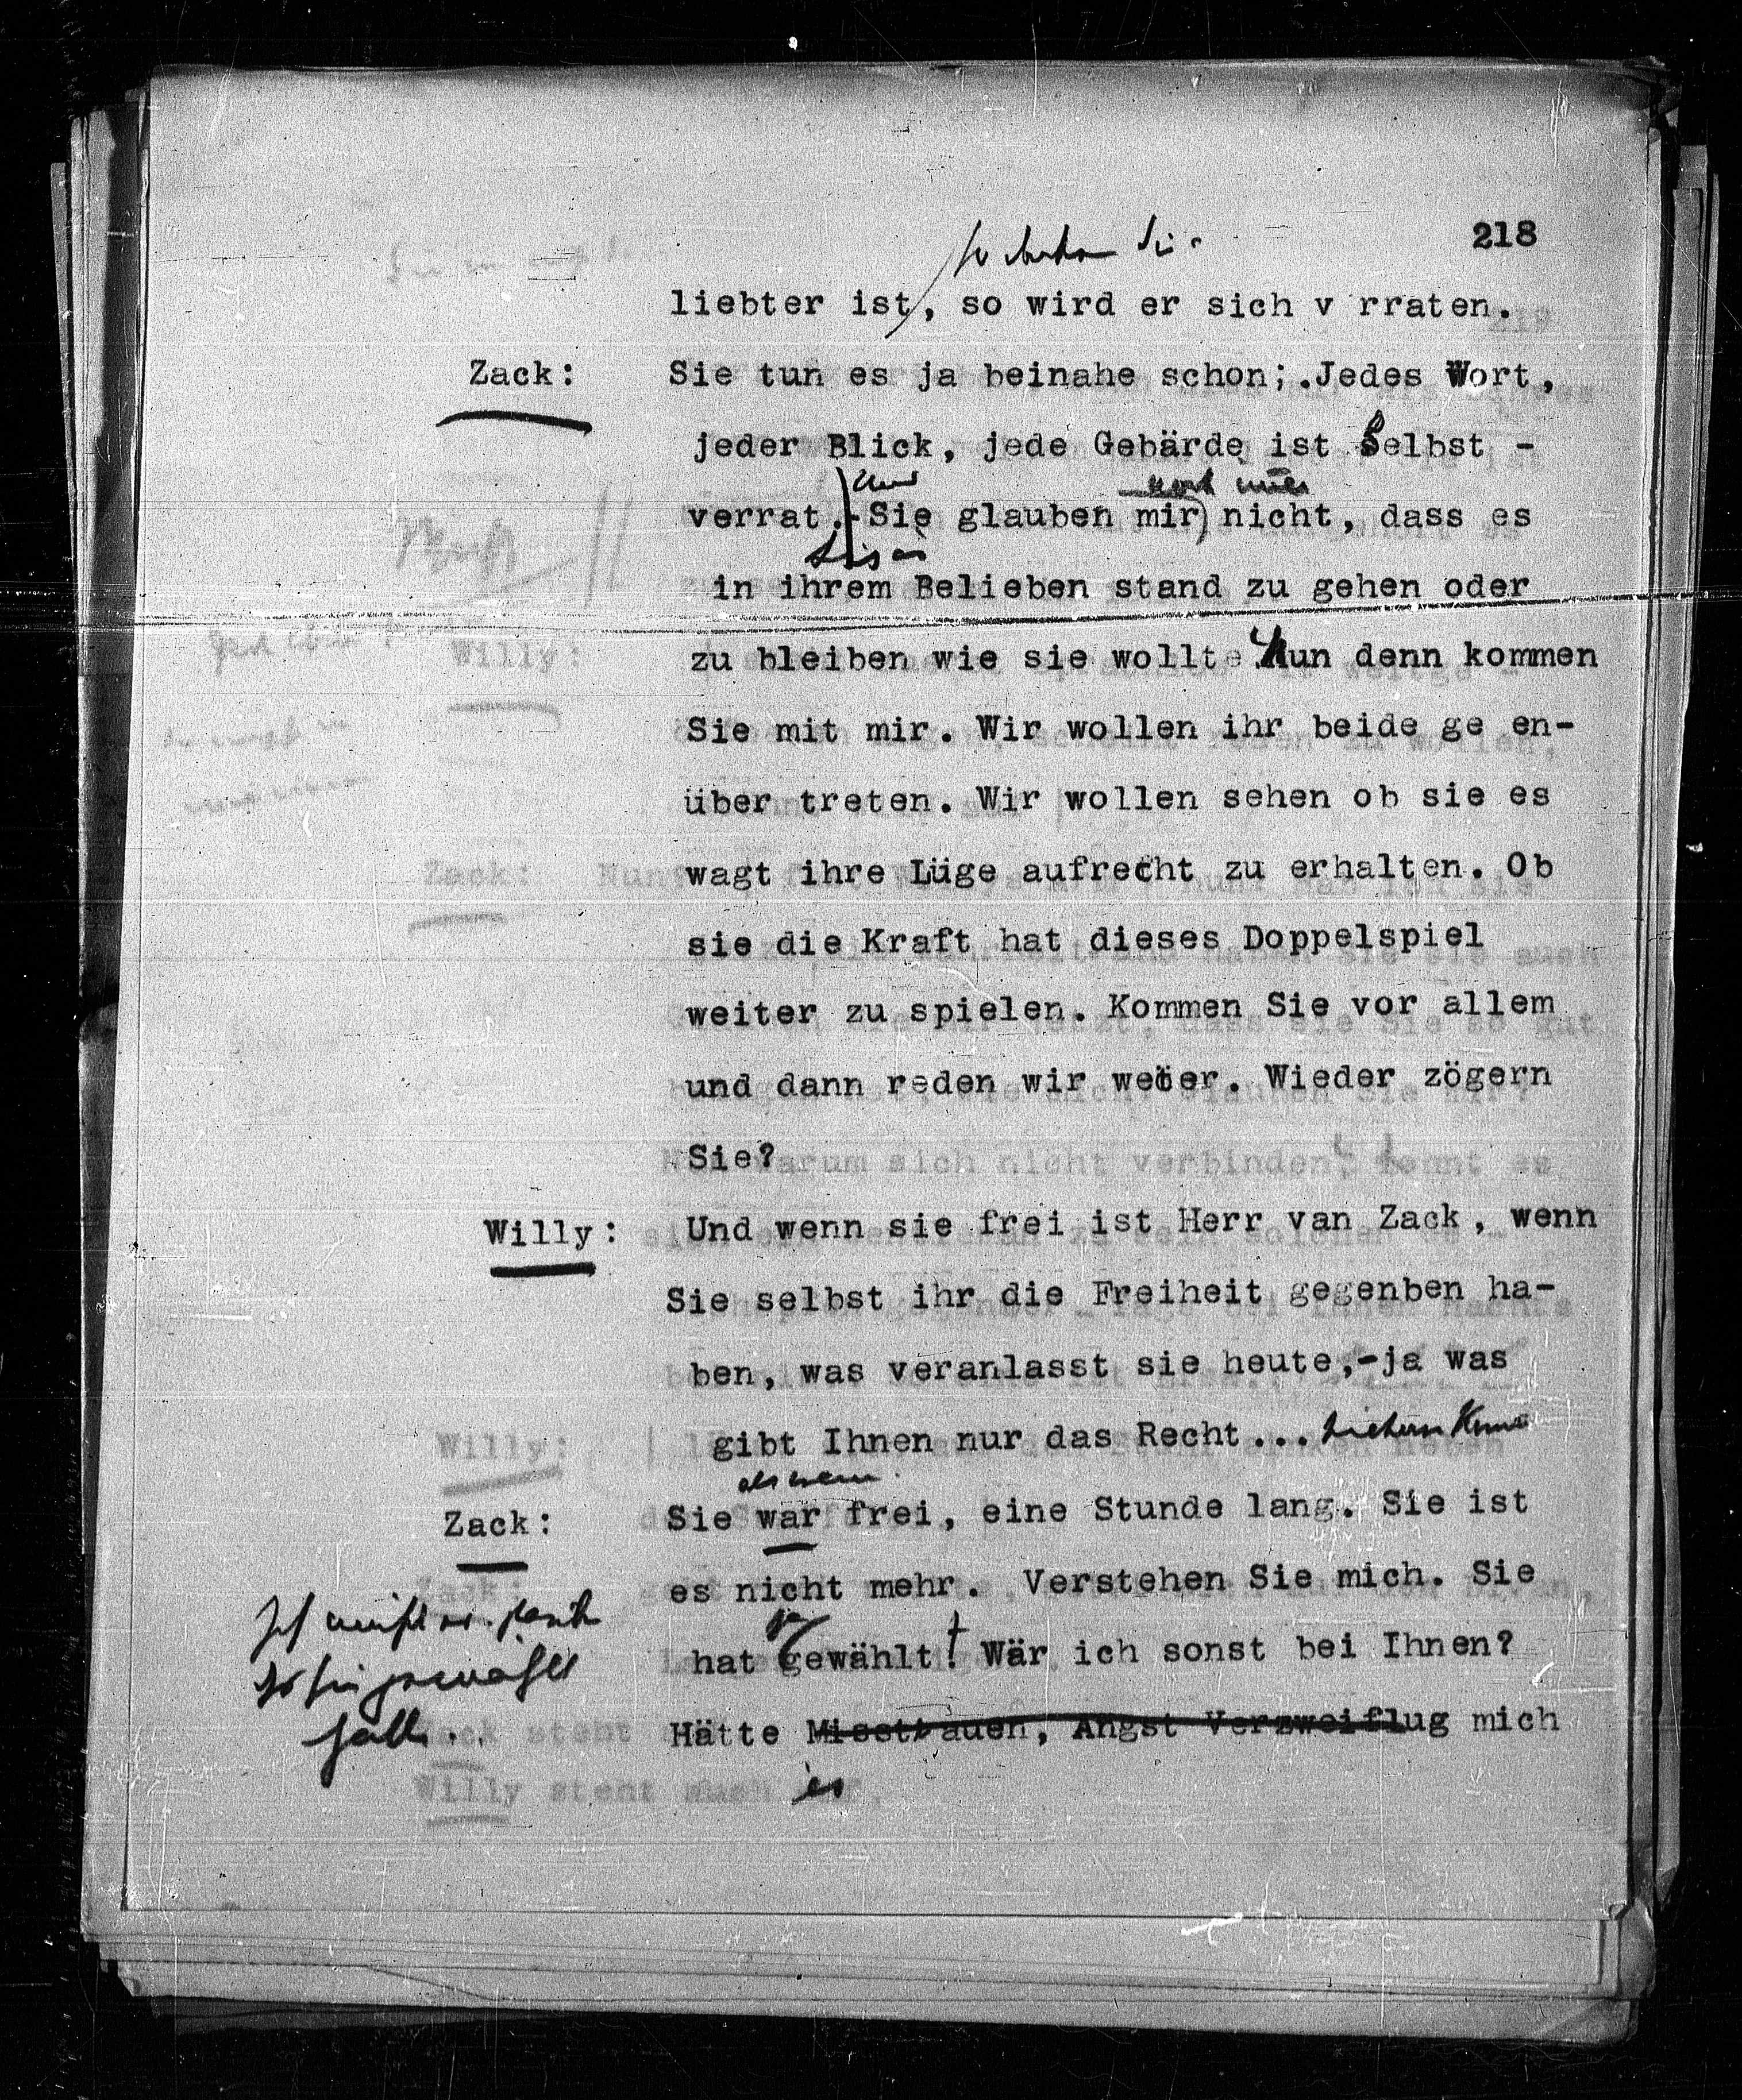 218
liebter ist, so wird er sich v rraten.
Zack: Sie tun es ja beinahe schon;.Jedes Wort,
jeder Blick, jede Gebärde ist Selbst -
und noch immer
verrat.-Sie glauben mir nicht, dass es
in ihrem Belieben stand zu gehen oder
zu bleiben wie sie wollte. Nun denn kommen
Sie mit mir. Wir wollen ihr beide ge en-
über treten. Wir wollen sehen ob sie es
wagt ihre Lüge aufrecht zu erhalten. Ob
sie die Kraft hat dieses Doppelspiel
weiter zu spielen. Kommen Sie vor allem
und dann reden wir weter. Wieder zögern
Sie?
Willy: Und wenn sie frei ist Herr van Zack, wenn
Sie selbst ihr die Freiheit gegenben ha-
ben, was veranlasst sie heute,-ja was
gibt Ihnen nur das Recht...
Zack: Sie war frei, eine Stunde lang. Sie ist
es nicht mehr. Verstehen Sie mich. Sie
ja
hat gewählt! Wär ich sonst bei Ihnen?
Hätte Misstrauen, Angst Verzweiflug mich
es